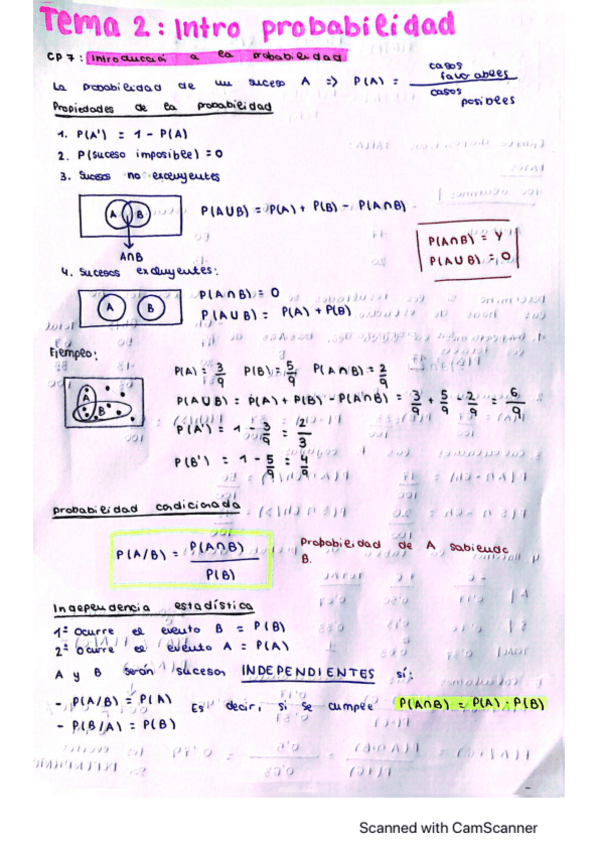 Tema 2: Intro probabilidad
CP 7: Introducción a la probabilidad
La probabilidad de un suceso A => P(A) = casos favorables / casos posibles
Propiedades de la probabilidad
1. P(A') = 1 - P(A)
2. P(suceso imposible) = 0
3. Sucesos no excluyentes
A B
P(A∪B) = P(A) + P(B) - P(A∩B)
A∩B
P(A∩B) = Y
P(A∪B) = O
4. Sucesos excluyentes:
A B
P(A∩B) = 0
P(A∪B) = P(A) + P(B)
Ejemplo:
A
B
P(A) = 3/9 P(B) = 5/9 P(A∩B) = 2/9
P(A∪B) = P(A) + P(B) - P(A∩B) = 3/9 + 5/9 - 2/9 = 6/9
P(A') = 1 - 3/9 = 2/3
P(B') = 1 - 5/9 = 4/9
probabilidad condicionada
P(A/B) = P(A∩B) / P(B)
Probabilidad de A sabiendo
B.
Independencia estadística
1º ocurre el evento B = P(B)
2º ocurre el evento A = P(A)
A y B serán sucesos INDEPENDIENTES si:
- P(A/B) = P(A)
Es decir, si se cumple P(A∩B) = P(A) · P(B)
- P(B/A) = P(B)
Scanned with CamScanner